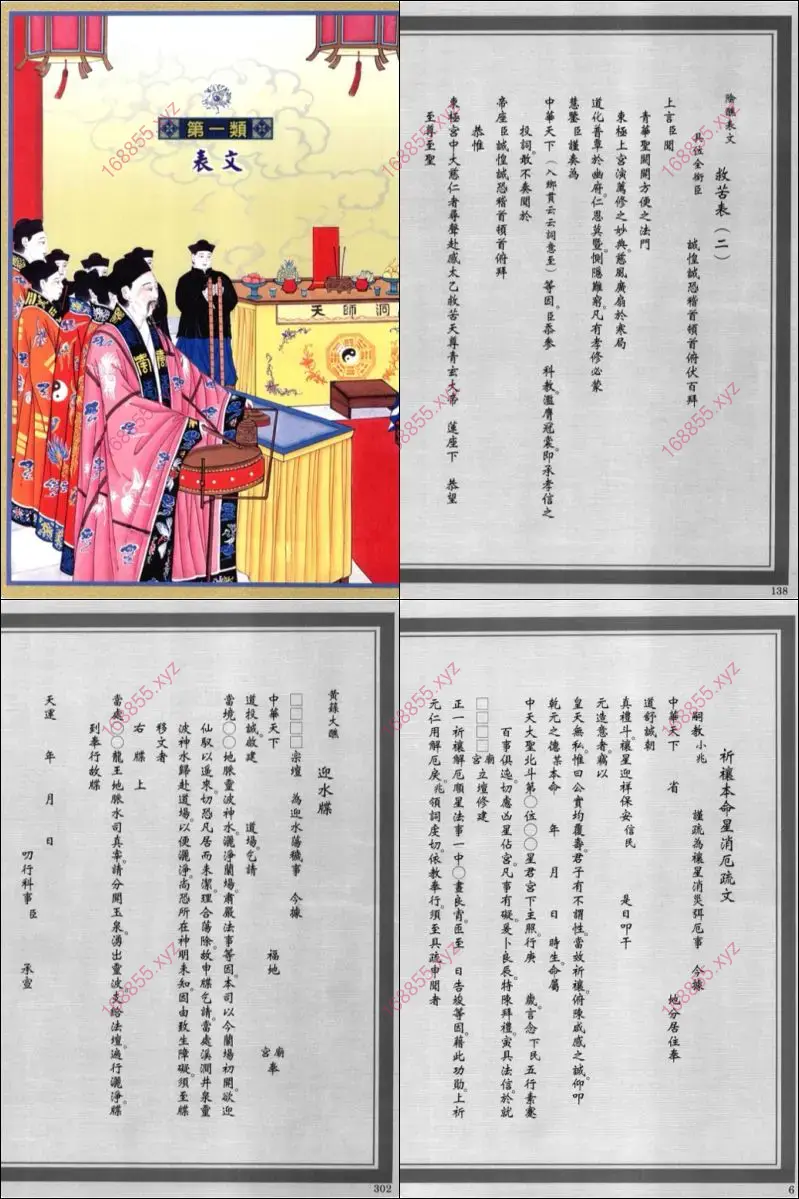 第一類
表文
天師洞
168855.xyz
陰醮表文
救苦表（二）
具位全銜臣　誠惶誠恐稽首頓首俯伏百拜
上言臣聞
青華聖闕開方便之法門
東極上宮演萬修之妙典慈風廣扇於寒局
道化普覃於幽府仁恩莫暨惻隱難窮凡有孝修必蒙
慧鑒臣謹奏為
中華天下（入鄉貫云云詞意至）等因臣忝參　科教濫膺冠裳即承孝信之
投詞敢不奏聞於
帝座臣誠惶誠恐稽首頓首俯拜
恭惟
東極宮中大慈仁者尋聲赴感太乙救苦天尊青玄大帝　蓮座下　恭望
至尊至聖
138
黃籙大醮
迎水牒
□□□□宗壇　為迎水蕩穢事　今據
中華天下　福地　宮廟奉
道投誠啟建　道場乞請
當境〇〇地脈靈波神水灑淨蘭場肅嚴法事等因本司以今蘭場初開欲迎
仙馭以遥來切恐凡居而未潔理合蕩除故申牒乞請當處溪澗井泉童
波神水歸赴道場以便灑淨尚恐所在神明未知因由致生障礙須至牒
移文者
右牒上
當處〇〇龍王地脈水司真宰請分開玉泉湧出靈波支給法壇遍行灑淨牒
到奉行故牒
天運　年　月　日
叨行科事臣　承宣
302
祈禳本命星消厄疏文
嗣教小兆　謹疏為禳星消災弭厄事　今據
中華天下　省　地分居住奉
道舒誠朝
真禮斗禳星迎祥保安信民　是日叩干
元造意者竊以
皇天無私惟曰公實均覆壽君子有不謂性當放祈禳俯陳咸感之誠仰叩
乾元之德某本命　年　月　日　時生命屬
中天大聖北斗第〇位〇〇星君宮下主照行庚　歲言念下民五行素蹇
百事俱迍切慮凶星佔宮凡事有礙爰卜良辰特陳拜禮寅具法信於就
□□□□宮廟立壇修建
正一祈禳解厄順星法事一中〇晝良宵臣至　日告竣等因藉此功勛上祈
元仁用解厄戾兆領詞虔切依教奉行須至具疏申聞者
6